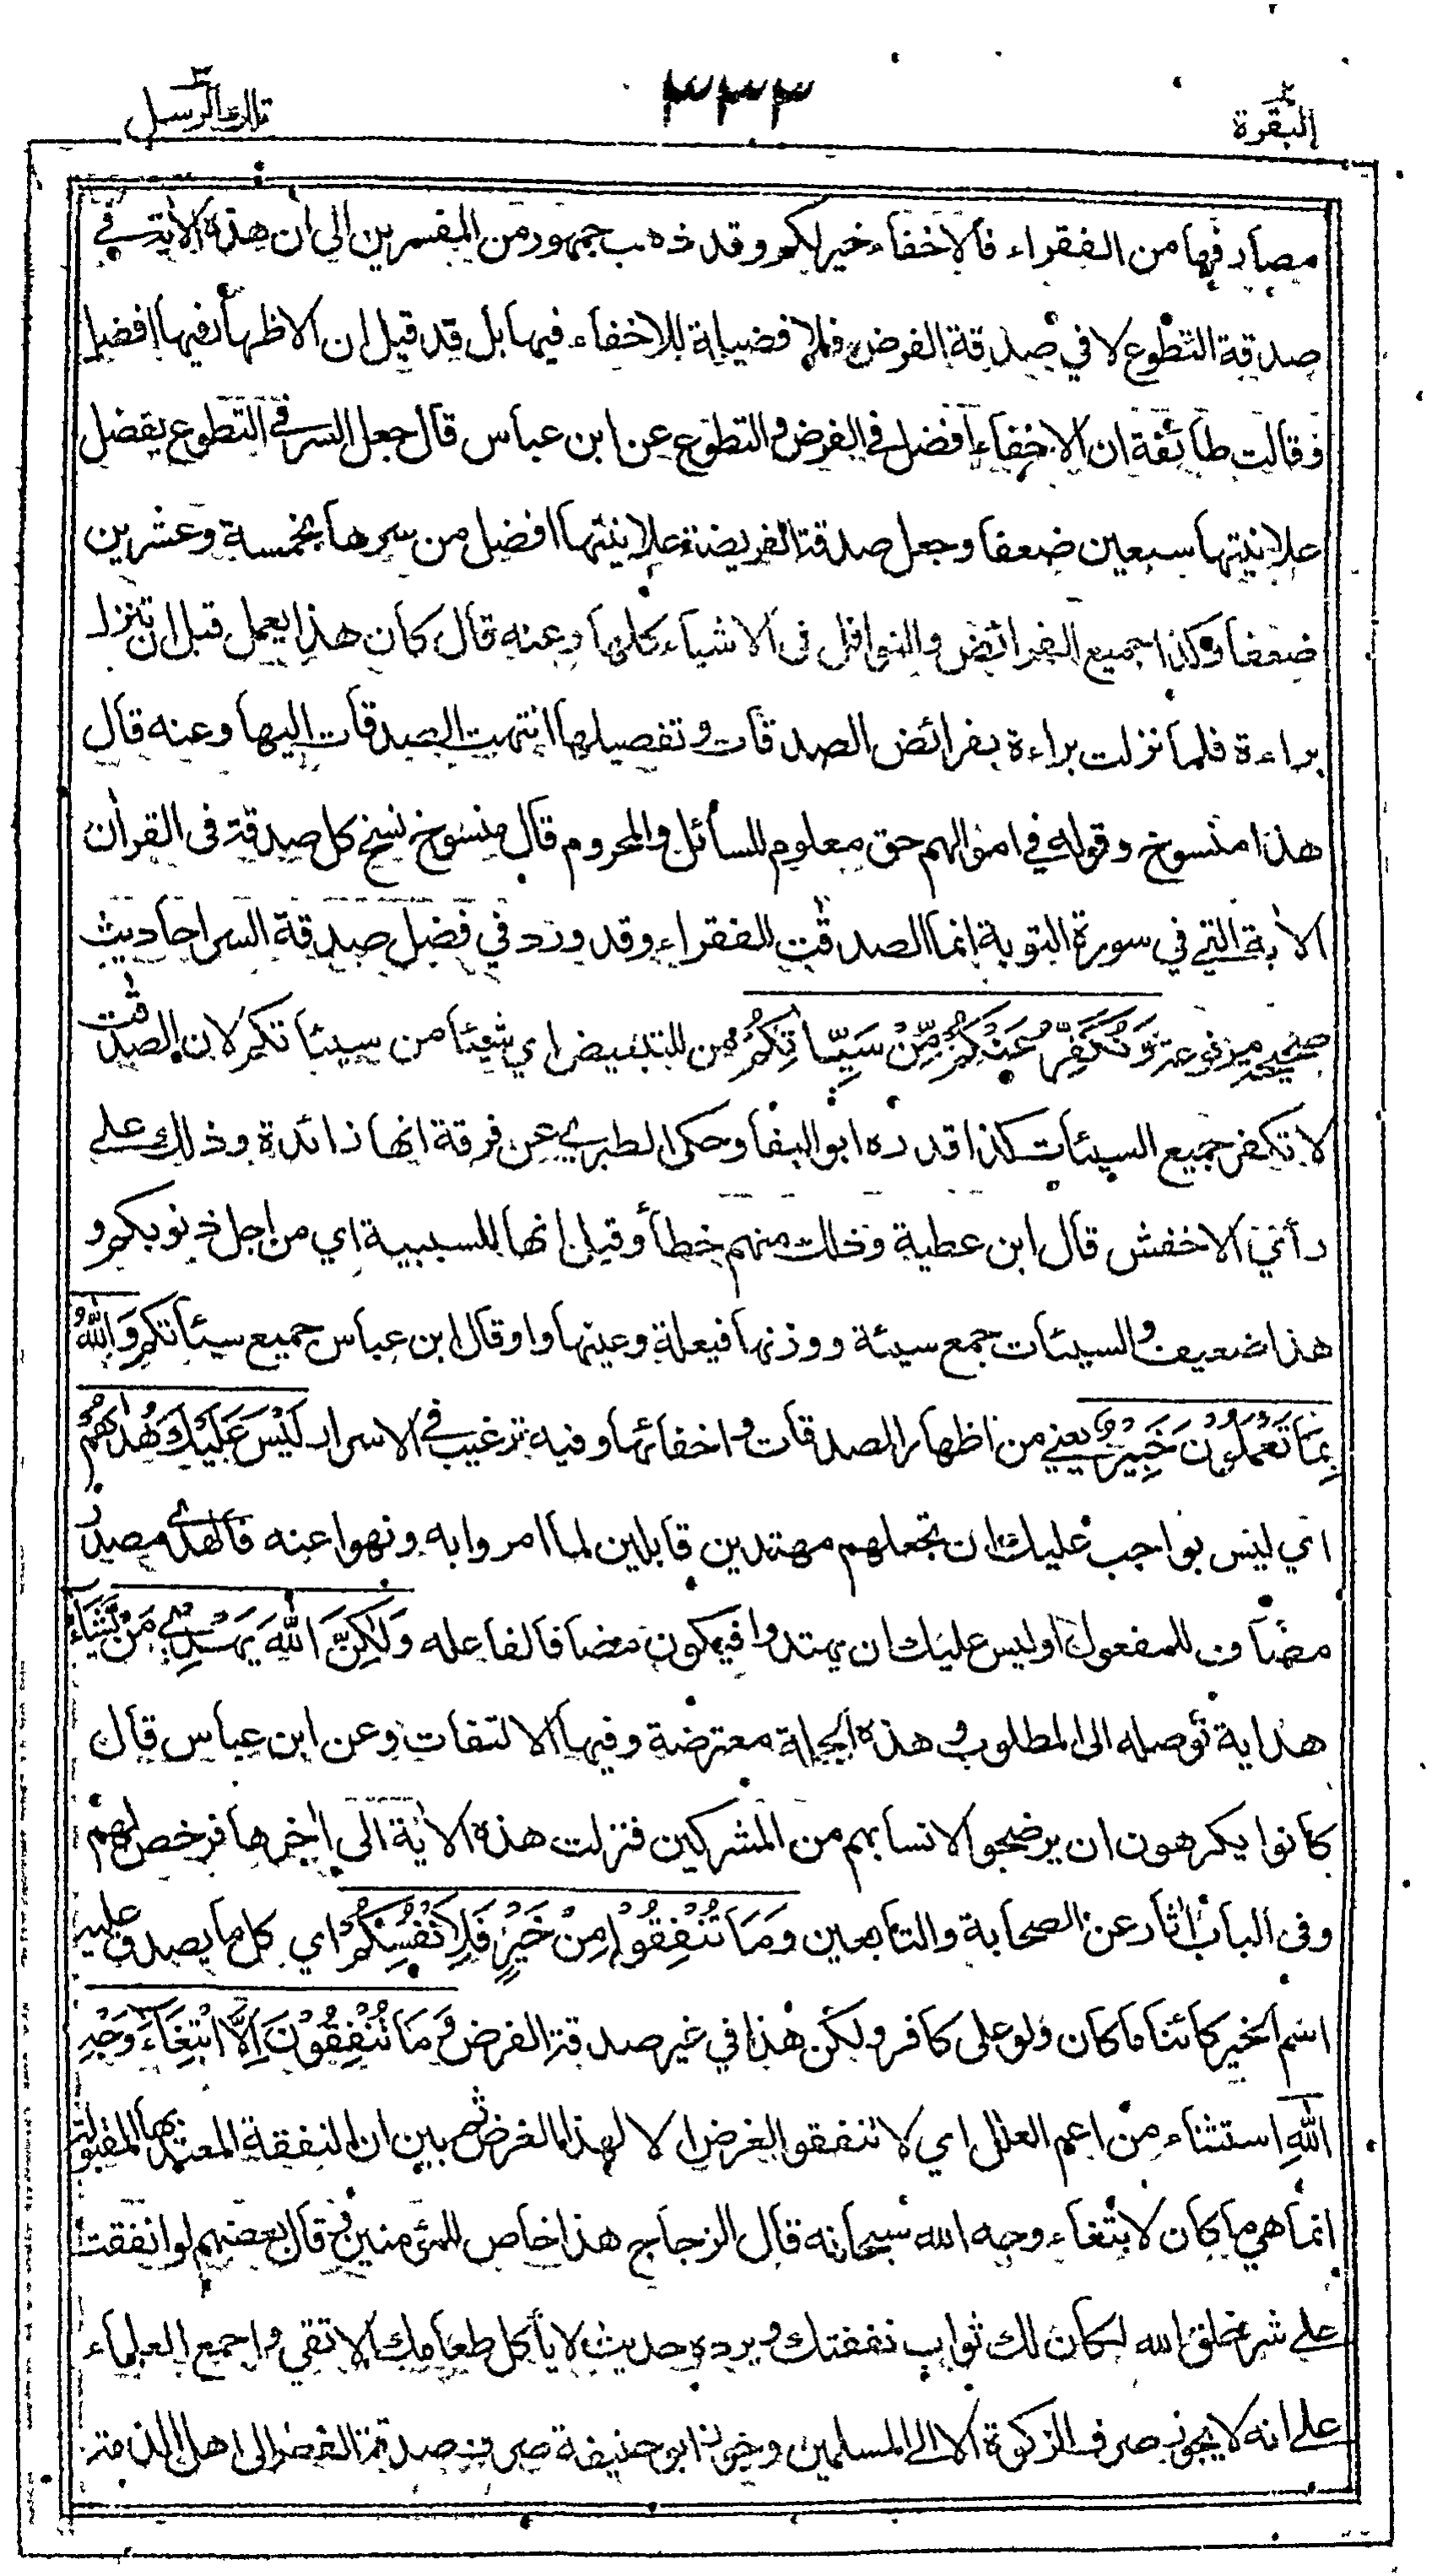 البقرة ٢
٣٣٣
تلك الرسل ٣
مصارفها من الفقراء فالاخفاء خير لكم وقد ذهب جمهور من المفسرين الى ان هذه الاٰية في
صدقة التطوع لا في صدقة الفرض فلا فضيلة للاخفاء فيها بل قد قيل ان الاظهار فيها افضل
وقالت طائفة ان الاخفاء افضل في الفرض والتطوع عن ابن عباس قال جعل السر في التطوع يفضل
علانيتها سبعين ضعفا وجعل صدقة الفريضة علانيتها افضل من سرها بخمسة وعشرين
ضعفا وكذا جميع الفرائض والنوافل في الاشياء كلها وعنه قال كان هذا يعمل قبل ان تنزل
براءة فلما نزلت براءة بفرائض الصدقات وتفصيلها انتهت الصدقات اليها وعنه قال
هذا منسوخ وقوله في اموالهم حق معلوم للسائل والمحروم قال منسوخ نسخ كل صدقة في القراٰن
الاٰية التي في سورة التوبة انما الصدقٰت للفقراء وقد ورد في فضل صدقة السر احاديث
صحيحة مرفوعة وَنُكَفِّرُ عَنْكُمْ مِّنْ سَيِّاٰتِكُمْ من للتبعيض اي شيئا من سيئاتكم لان الصدقٰت
لا تكفر جميع السيئات كذا قدره ابو البقا وحكى الطبري عن فرقة انها زائدة وذلك على
رأي الاخفش قال ابن عطية وذلك منهم خطأ وقيل انها للسببية اي من اجل ذنوبكم و
هذا ضعيف والسيئات جمع سيئة ووزنها فيعلة وعينها واو قال ابن عباس جميع سيئاتكم وَاللّٰهُ
بِمَا تَعْمَلُوْنَ خَبِيْرٌ يعني من اظهار الصدقات واخفائها وفيه ترغيب في الاسرار لَيْسَ عَلَيْكَ هُدٰىهُمْ
اي ليس بواجب عليك ان تجعلهم مهتدين قابلين لما امروا به ونهوا عنه فالهدى مصدر
مضاف للمفعول او ليس عليك ان يهتدوا فيكون مضافا لفاعله وَلٰكِنَّ اللّٰهَ يَهْدِيْ مَنْ يَّشَآءُ
هداية توصله الى المطلوب وهذه الجملة معترضة وفيها الالتفات وعن ابن عباس قال
كانوا يكرهون ان يرضخوا لانسابهم من المشركين فنزلت هذه الاٰية الى اٰخرها فرخص لهم
وفي الباب اٰثار عن الصحابة والتابعين وَمَا تُنْفِقُوْا مِنْ خَيْرٍ فَلِاَنْفُسِكُمْ اي كل ما يصدق عليه
اسم الخير كائنا ما كان ولو على كافر ولكن هذا في غير صدقة الفرض وَمَا تُنْفِقُوْنَ اِلَّا ابْتِغَآءَ وَجْهِ
اللّٰهِ استثناء من اعم العلل اي لا تنفقوا لغرض الا لهذا الغرض ثم بين ان النفقة المعتد بها المقبولة
انما هي ما كان لابتغاء وجه الله سبحانه قال الزجاج هذا خاص للمؤمنين قال بعضهم لو انفقت
على شر خلق الله لكان لك ثواب نفقتك ويرده حديث لا يأكل طعامك الا تقي واجمع العلماء
على انه لا يجوز صرف الزكوة الا الى المسلمين وجوز ابو حنيفة صرف صدقة الفطر الى اهل الذمة